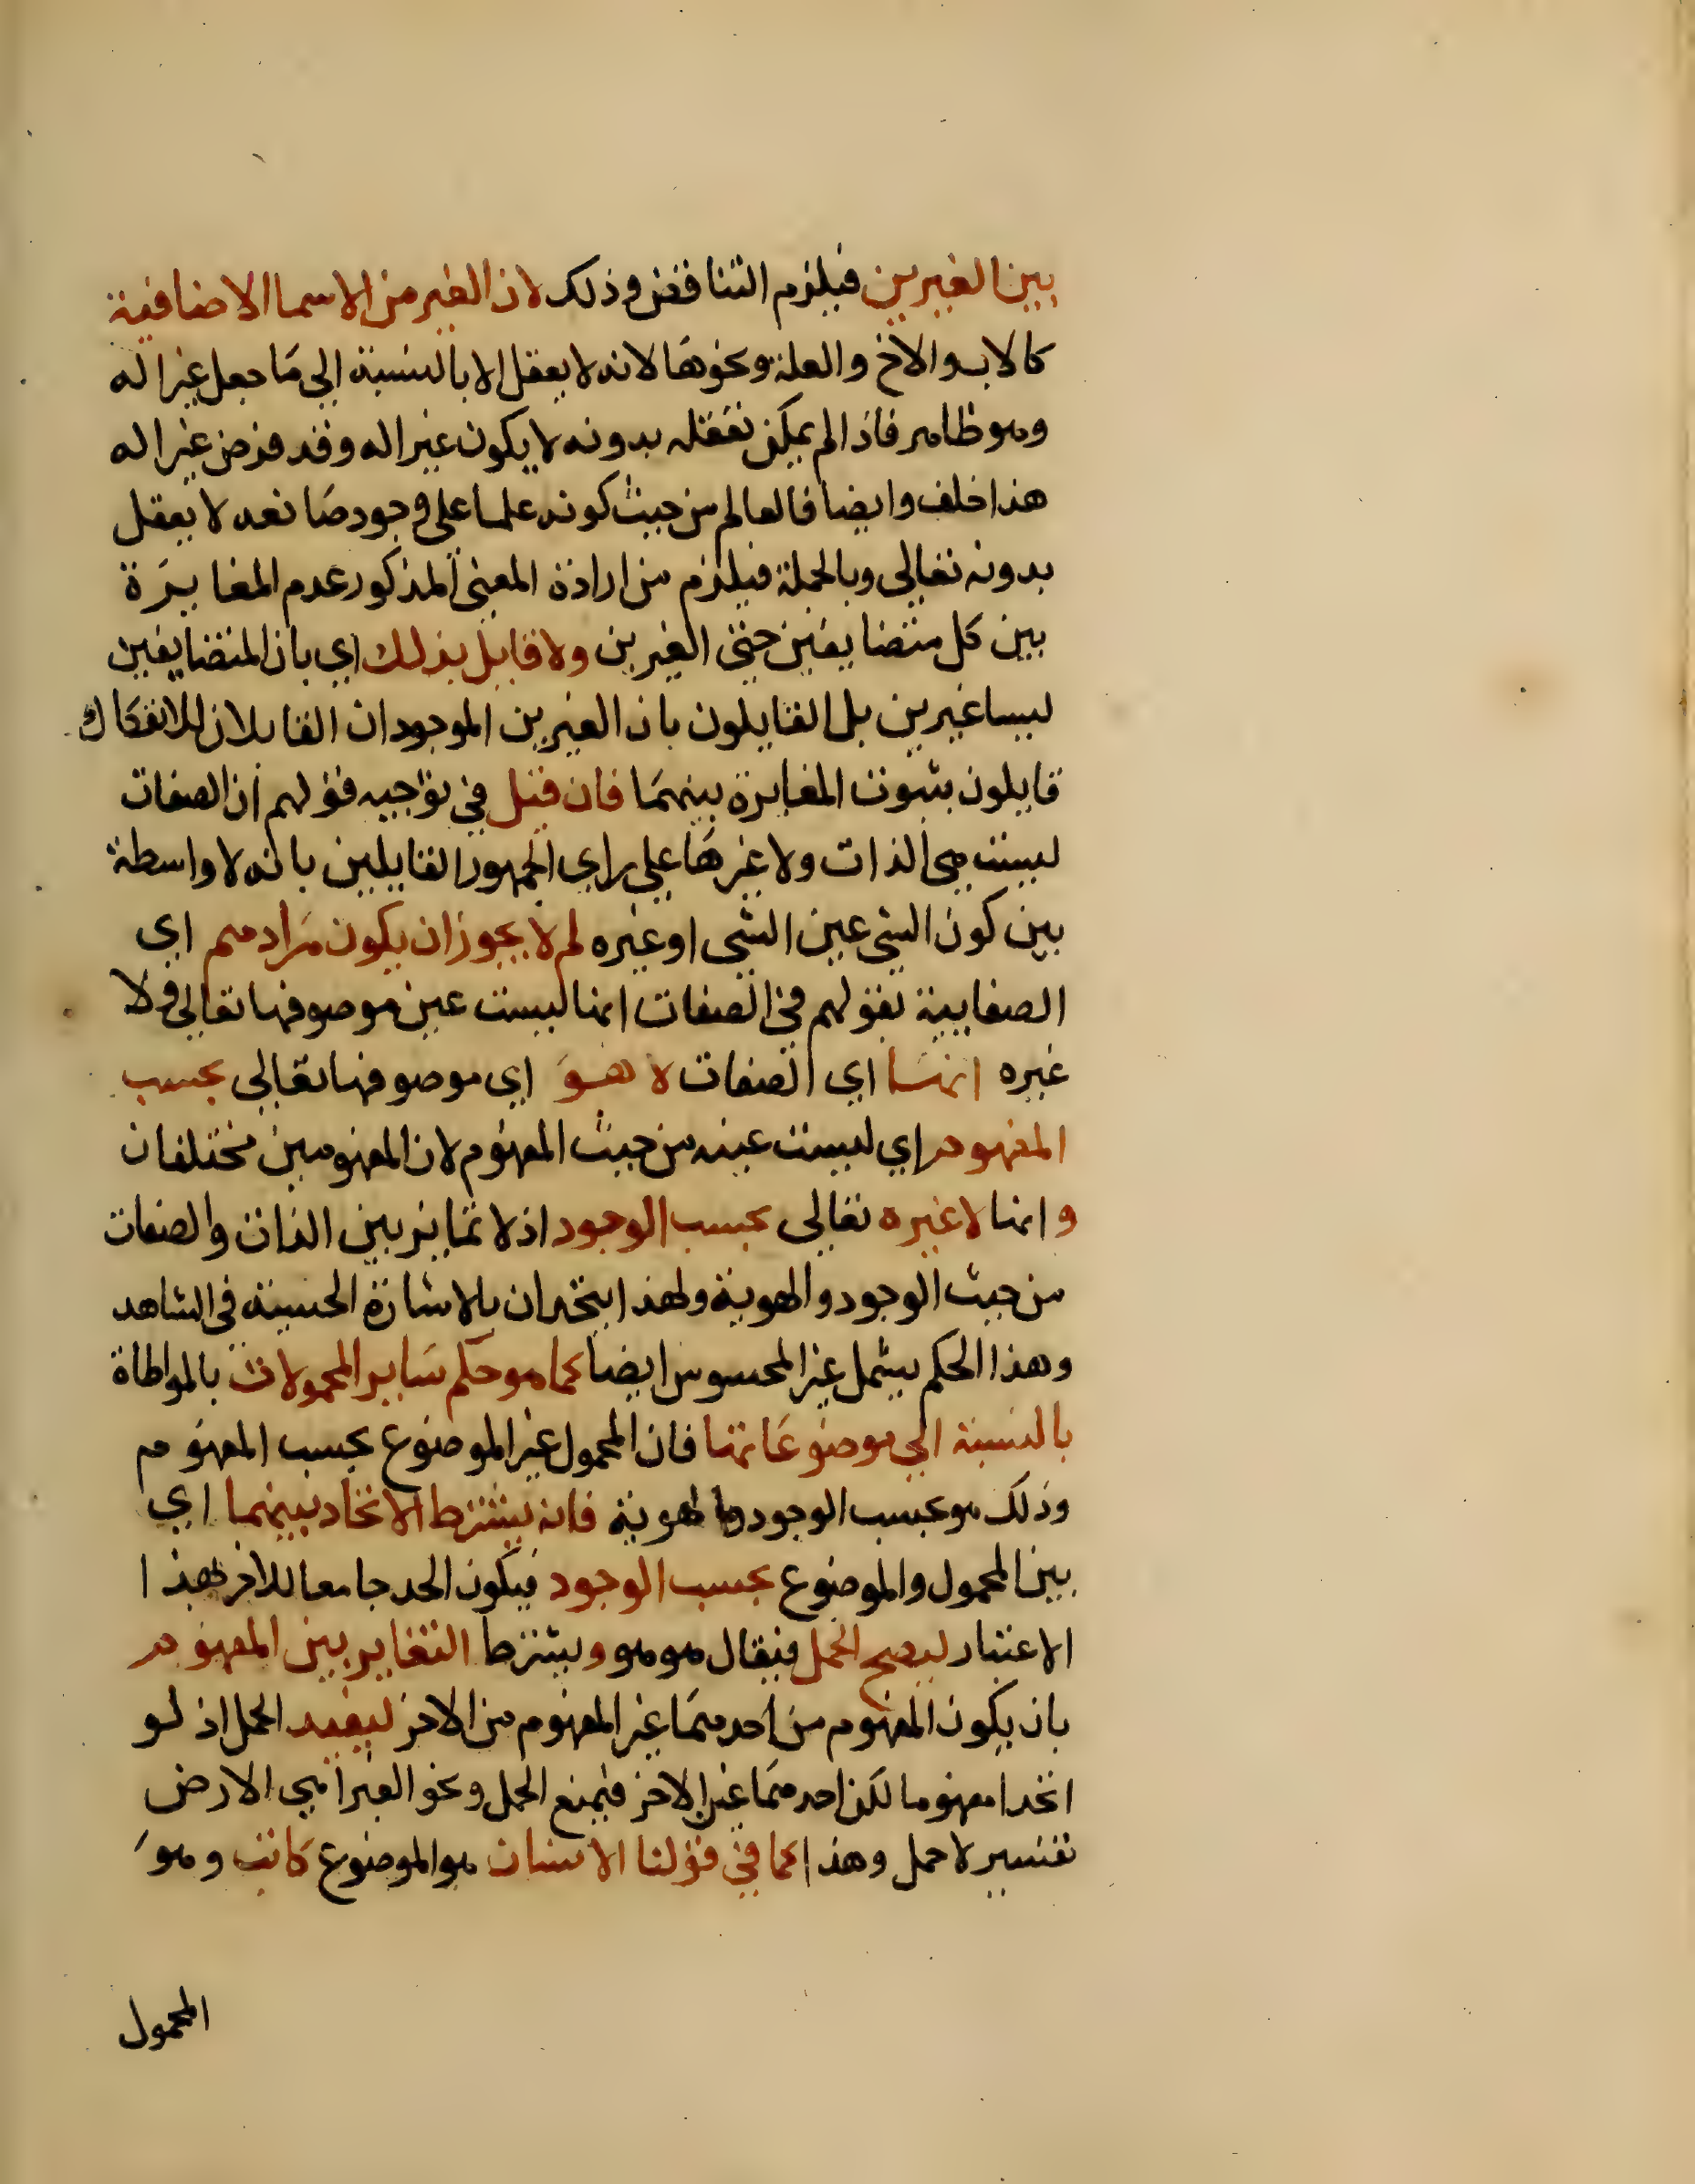 بين الغيرين فيلزم التناقض وذلك لان الغير من الاسما الاضافية
كالاب والاخ والعلة ونحوها لانه لا يعقل الا بالنسبة الى ما جعل غيرا له
وهو ظاهر فاذا لم يمكن تعقله بدونه لا يكون غيرا له وقد فرض غيرا له
هذا خلف وايضا فالعالم من حيث كونه علما على وجود صانعه لا يعقل
بدونه تعالى وبالجملة فيلزم من ارادة المعنى المذكور عدم المغايرة
بين كل متضايفين حتى الغيرين ولا قايل بذلك اي بان المتضايفين
ليسا غيرين بل القايلون بان الغيرين الموجودان القابلان للانفكاك
قايلون بثبوت المغايرة بينهما فان قيل في توجيه قولهم ان الصفات
ليست هي الذات ولا غيرها على راي الجمهور القايلين بانه لا واسطة
بين كون الشي عين الشي او غيره لم لا يجوز ان يكون مرادهم اي
الصفايية بقولهم في الصفات انها ليست عين موصوفها تعالى ولا
غيره انها اي الصفات لا هو اي موصوفها تعالى بحسب
المفهوم اي ليست عينه من حيث المفهوم لان المفهومين مختلفان
و انها لا غيره تعالى بحسب الوجود اذ لا تمايز بين الذات والصفات
من حيث الوجود والهوية ولهذا يتحدان بالاشارة الحسية في الشاهد
وهذا الحكم يشمل غير المحسوس ايضا كما هو حكم ساير المحمولات بالمواطاة
بالنسبة الى موضوعاتها فان المحمول غير الموضوع بحسب المفهوم
وذلك هو بحسب الوجود والهوية فانه يشترط الاتحاد بينهما اي
بين المحمول والموضوع بحسب الوجود فيكون الحد جامعا للاخر بهذا
الاعتبار ليصح الحمل فيقال هو هو ويشترط التغاير بين المفهوم
بان يكون المفهوم من احدهما غير المفهوم من الاخر ليفيد الحمل اذ لو
اتحدا مفهوما لكن احدهما عين الاخر فيمنع الحمل ونحو الغبرا هي الارض
تفسير لا حمل وهذا كما في قولنا الانسان هو الموضوع كاتب وهو
المحمول